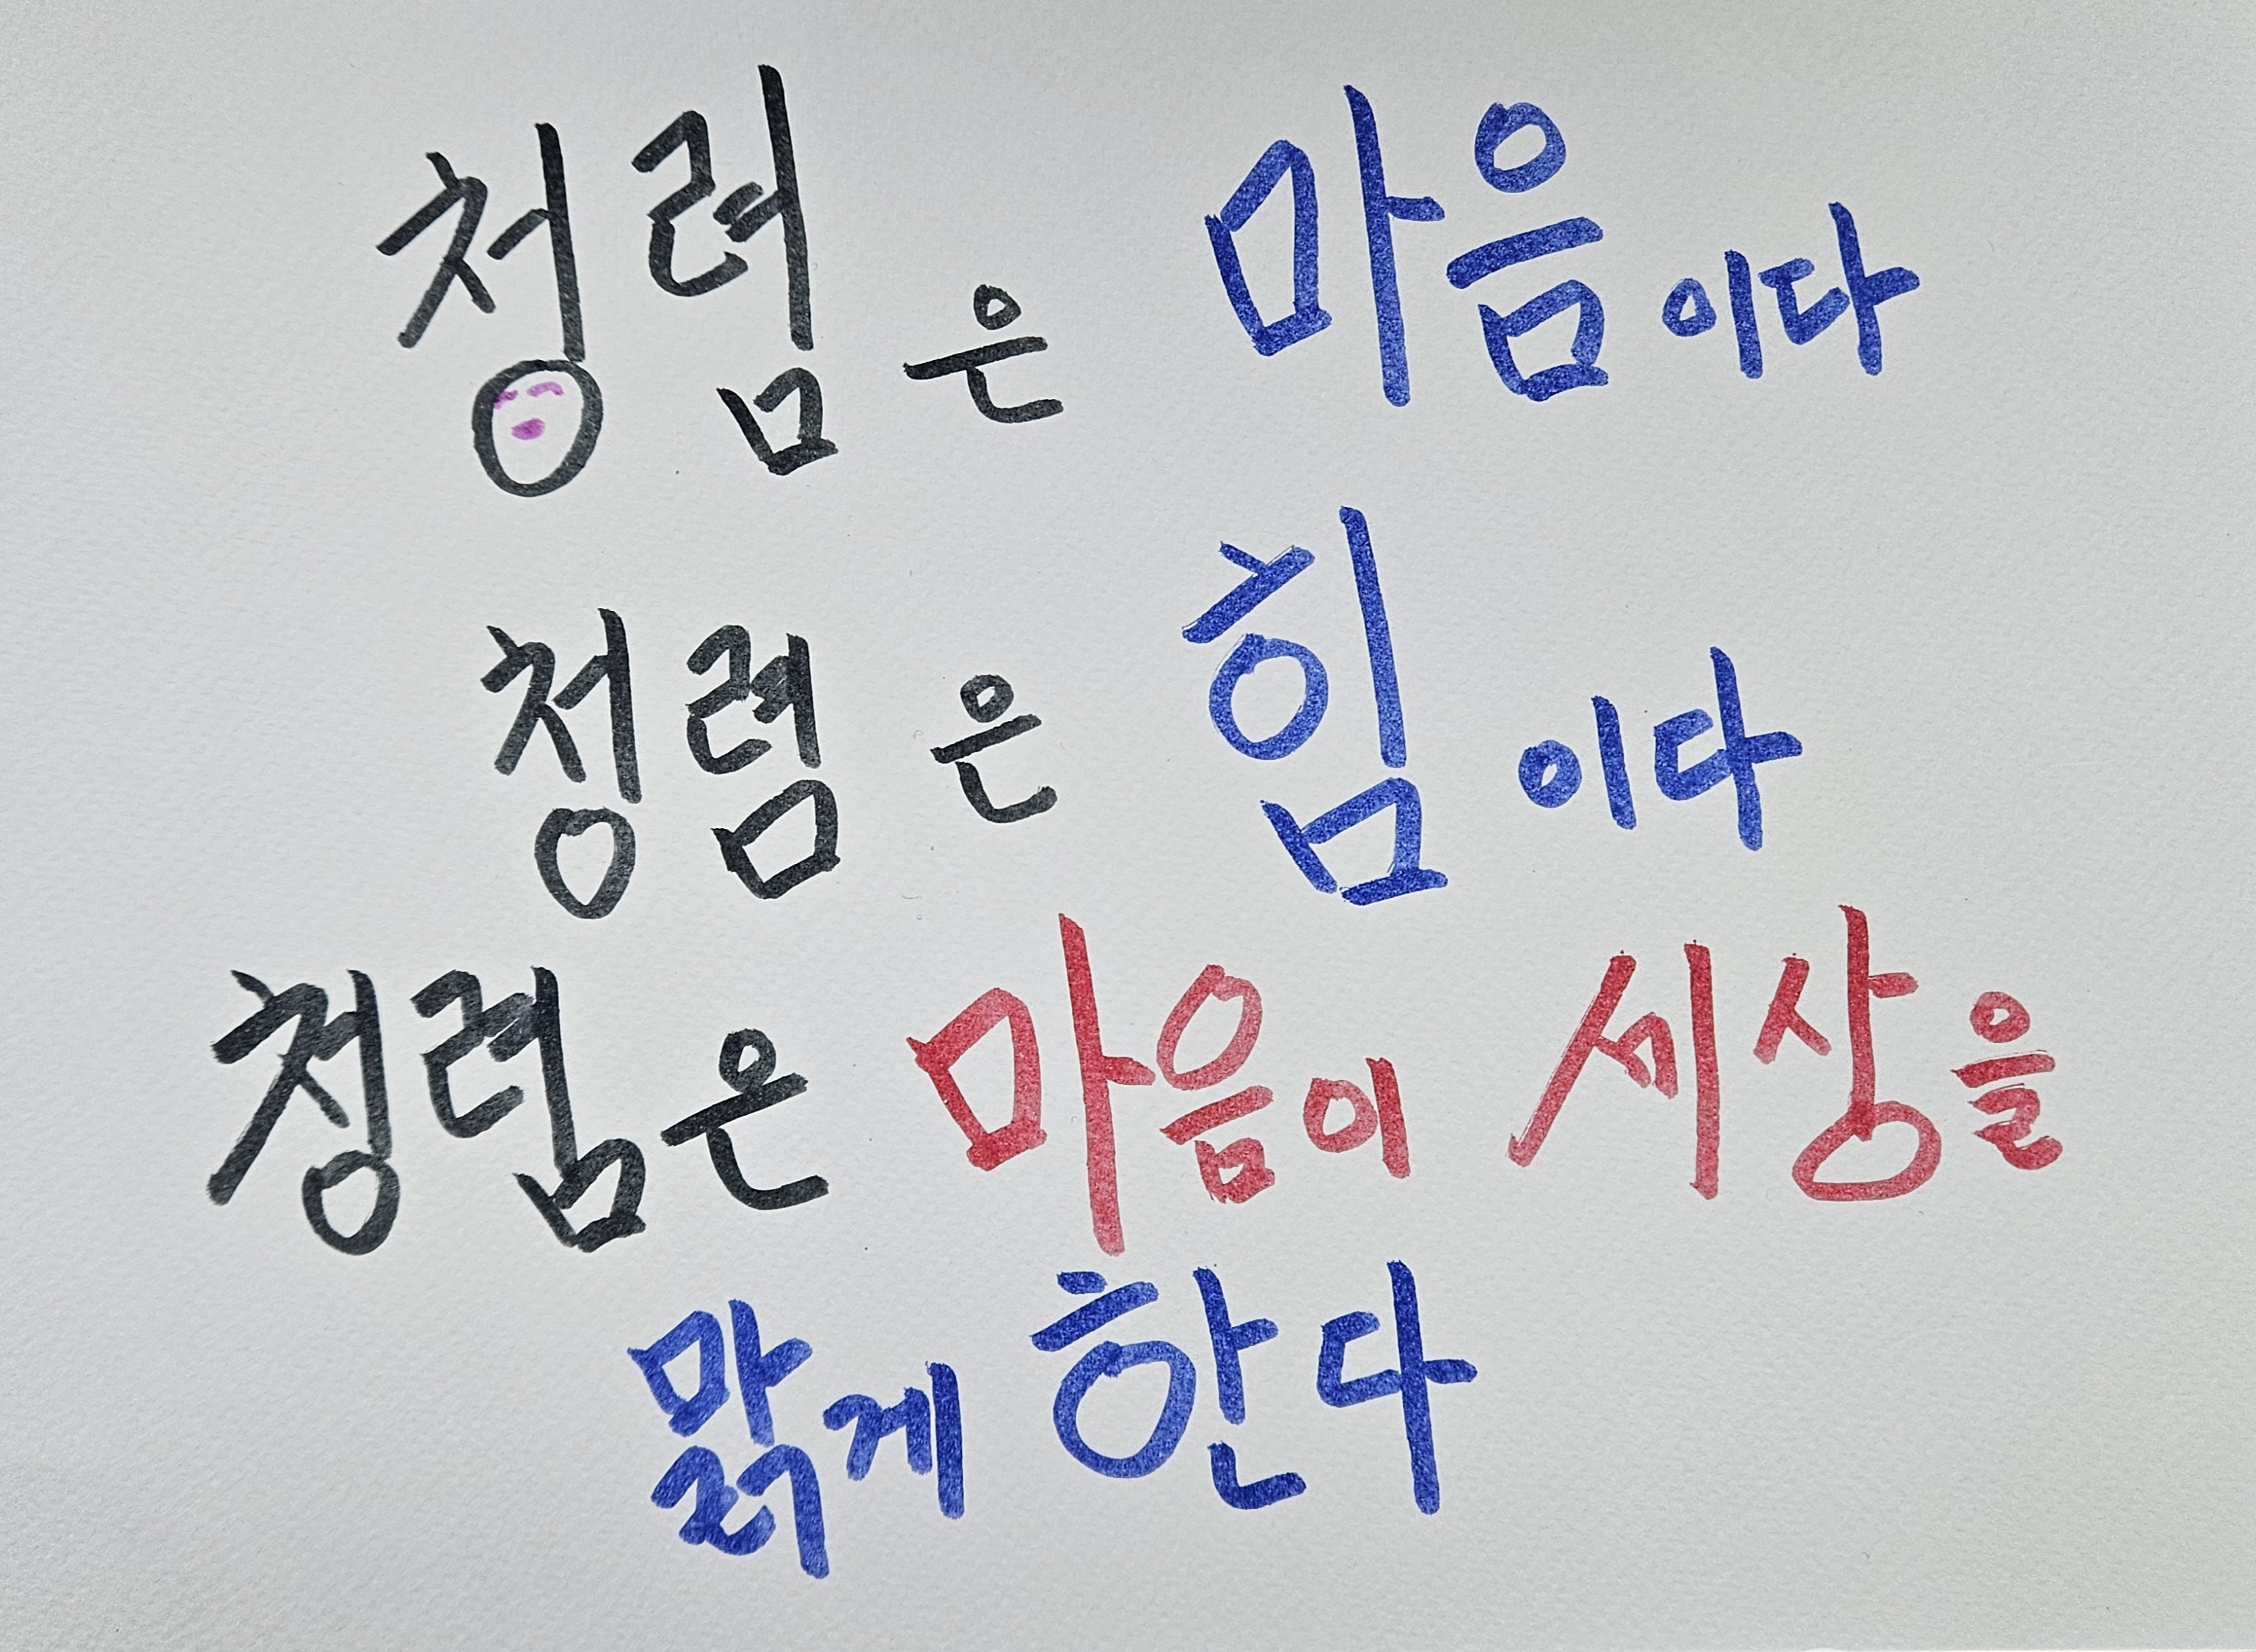 청렴은 마음이다
청렴은 힘이다
청렴은 마음이 세상을
맑게 한다